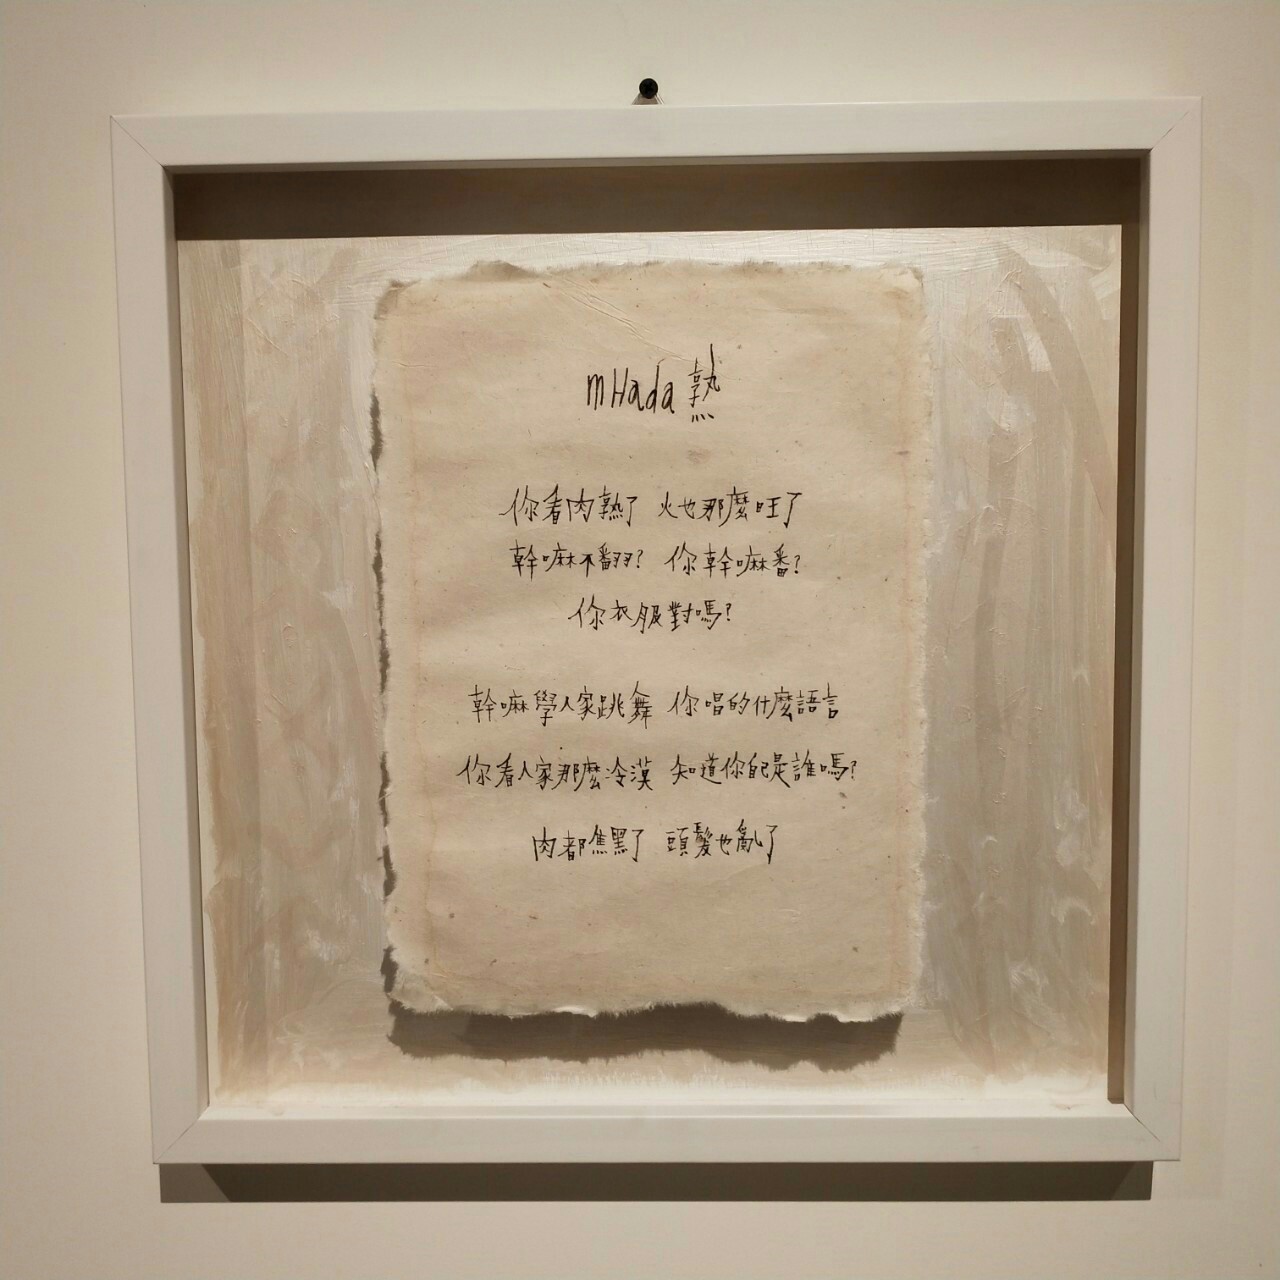 mHada 熟
你看肉熟了 火也那麼旺了
幹嘛不翻? 你幹嘛番?
你衣服對嗎?
幹嘛學人家跳舞 你唱的什麼語言
你看人家那麼冷漠 知道你自己是誰嗎?
肉都焦黑了 頭髮也亂了